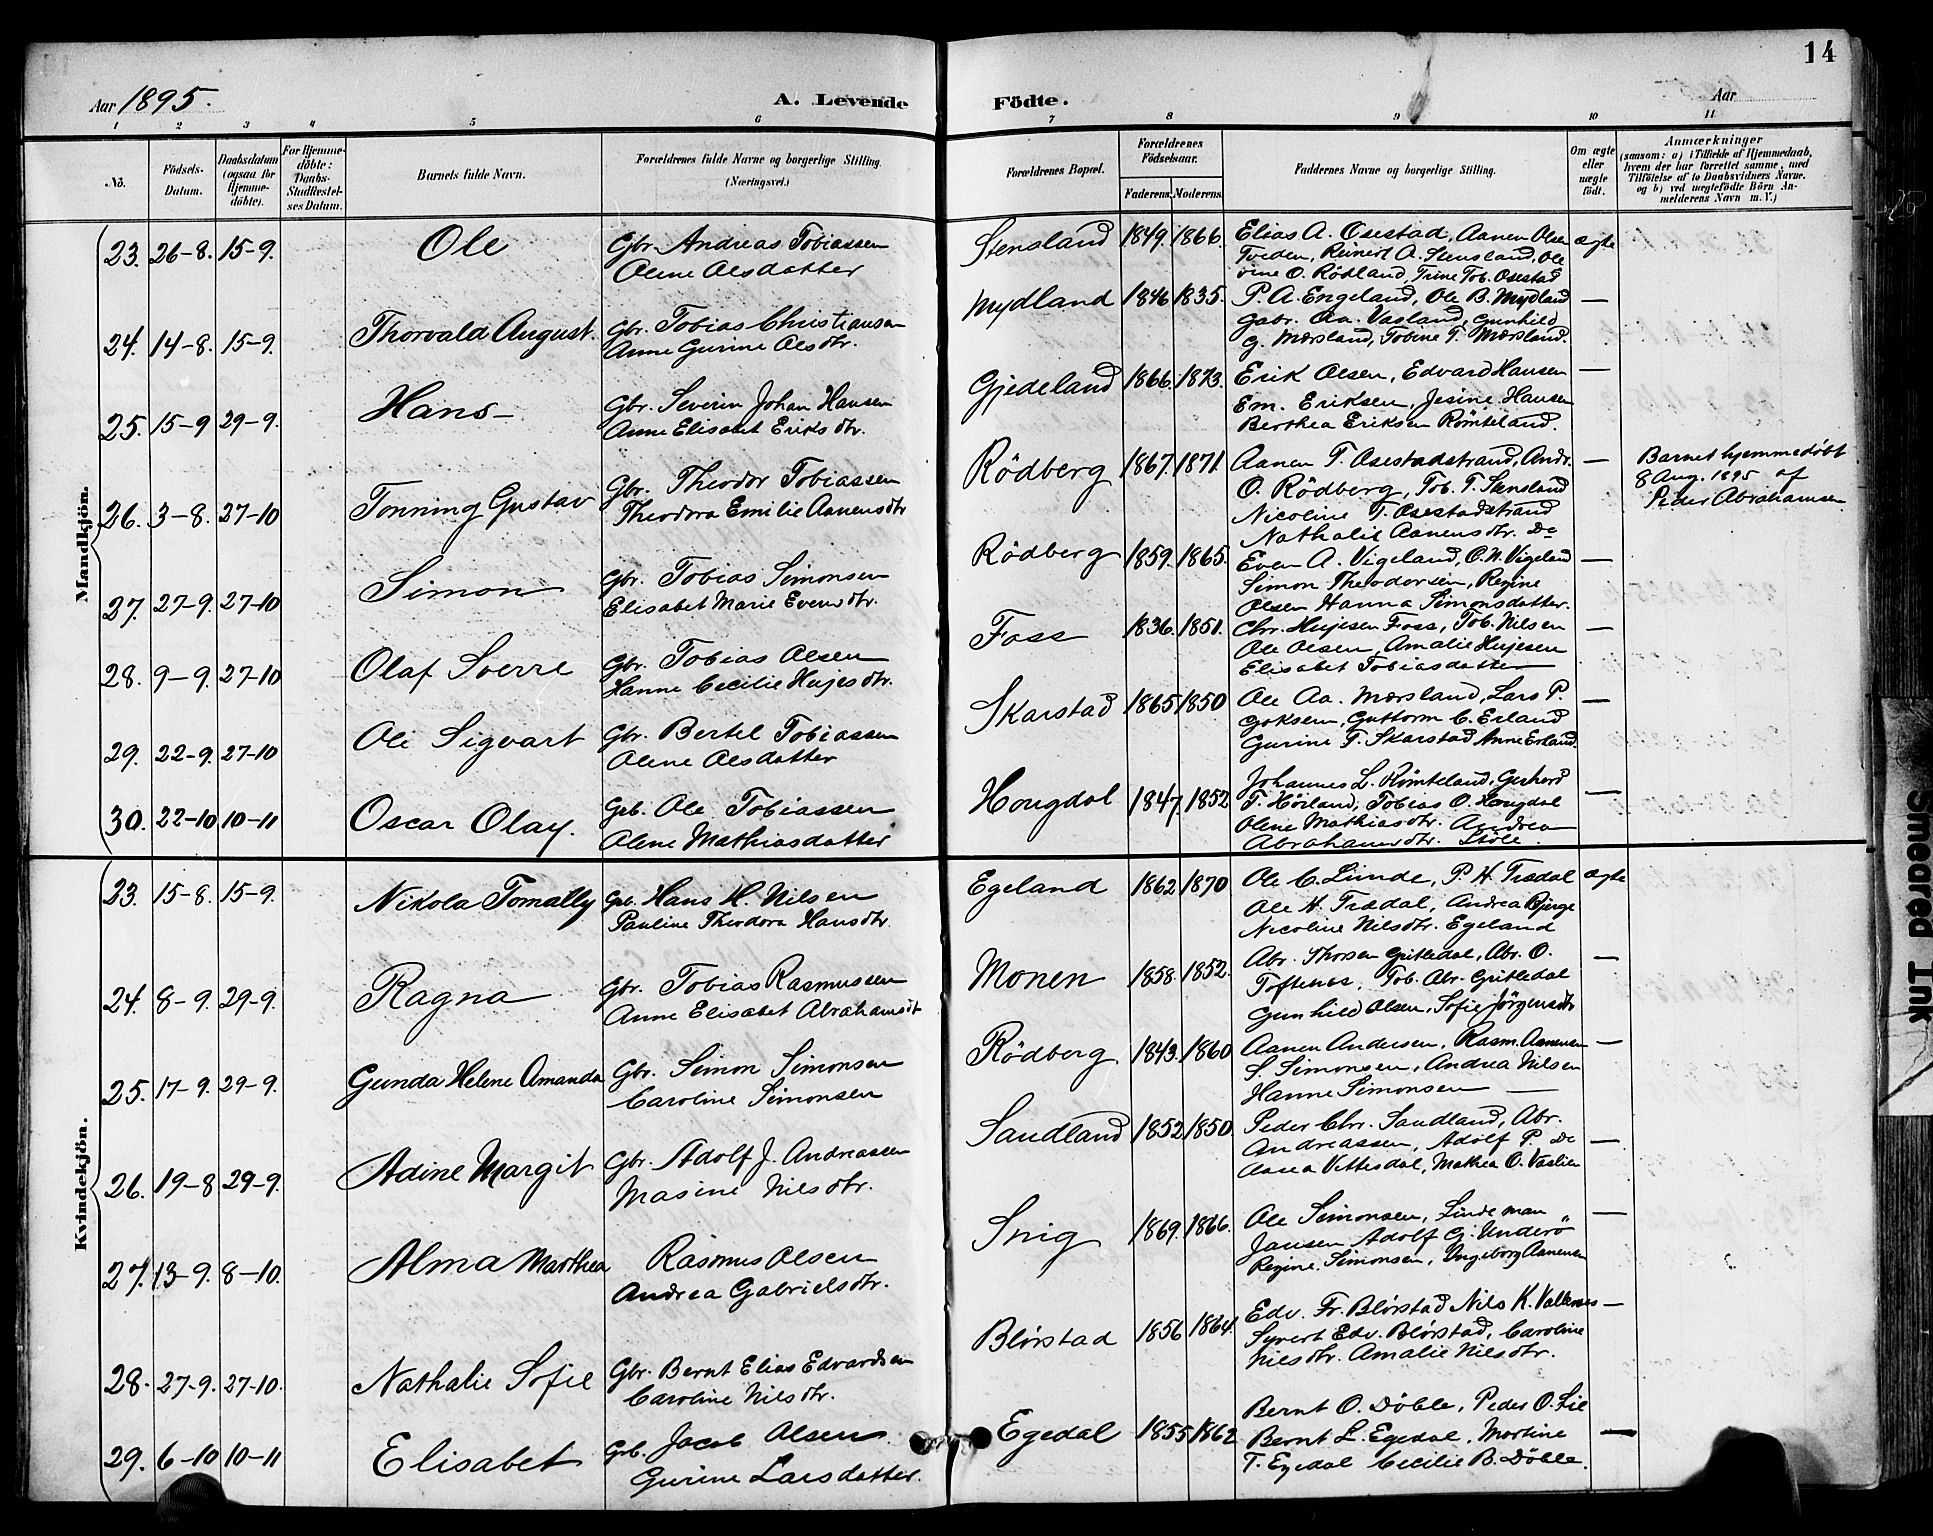 14
Aar 1895.
A. Levende Födte.
Aar
1 2 3 4 5 6 7 8 9 10 11
No.
Födsels-Datum.
Daabsdatum (ogsaa for Hjemme-döbte).
For Hjemme-döbte: Daabs-Stadfæstel-ses Datum.
Barnets fulde Navn.
Forældrenes fulde Navne og borgerlige Stilling. (Næringsvei.)
Forældrenes Bopæl.
Forældrenes Födselsaar.
Faderens. Moderens.
Faddernes Navne og borgerlige Stilling.
Om ægte eller uægte födt.
Anmærkninger
(saasom: a) i Tilfælde af Hjemmedaab, hvem der har forrettet samme, med Tilföielse af to Daabsvidners Navne, og b) ved uægtefödte Börn An-melderens Navn m. V.)
Mandkjön.
23. 26-8. 15-9. Ole Gbr. Andreas Tobiassen Stensland 1849. 1866. Elias A. Osestad, Aanen Olsen ægte
Olene Olsdatter Tveden, Reinert A. Stensland, Ole
vine O. Rødland, Trine Tob. Osestad
24. 14-8. 15-9. Thorvald August. Gbr. Tobias Christiansen Mydland 1846 1835. P. A. Engeland, Ole B. Mydland —
Anne Gurine Olsdtr. Gabr. Aa. Vasland, Gunhild
G. Mærsland, Tobine T. Mærsland.
25. 15-9 29-9. Hans — Gbr. Severin Johan Hansen Gjedeland 1866. 1873. Erik Olsen, Edvard Hansen —
Anne Elisabet Eriksdtr. Em. Eriksen, Jesine Hansen
Berthea Eriksen Rømteland.
26. 3-8. 27-10 Tonning Gustav Gbr. Theodor Tobiassen Rödberg 1867. 1871. Aanen T. Osestadstrand, Andr. — Barnet hjemmedøbt
Theodora Emilie Aanensdtr O. Rödberg, Tob. T. Stensland 8 Aug. 1895 af
Nicoline T. Osestadstrand Peder Abrahamsen
Nathalie Aanensdtr. Do
27. 27-9. 27-10 Simon Gbr. Tobias Simonsen Rödberg 1859. 1865. Even A. Vigeland, O. N. Vigeland —
Elisabet Marie Evensdtr. Simon Theodorsen, Regine
Olsen Hanna Simonsdatter.
28. 9-9. 27-10 Olaf Sverre Gbr. Tobias Olsen Foss 1836. 1851. Chr. Heyesen Foss, Tob. Nilsen —
Hanne Cecilie Heyesdtr. Ole Olsen, Amalie Heyesen
Elisabet Tobiasdatter
29. 22-9. 27-10 Ole Sigvart Gbr. Bertel Tobiassen Skarstad 1865 1850 Ole Aa. Mærsland, Lars P. —
Olene Olsdatter Goksem, Guttorm C. Erland
Gurine T. Skarstad Anne Erland.
30. 22-10 10-11 Oscar Olay. Grb. Ole Tobiassen Hougdal 1847. 1852 Johannes L. Rømteland, Gerhard —
Olene Mathiasdatter T. Hörland, Tobias O. Hougdal
Olene Mathiasdtr. Andrea
Abrahamsdtr. Støle.
Kvindekjön.
23. 15-8. 15-9. Nikola Tomally Grb. Hans H. Nilsen Egeland 1862 1870 Ole C. Lunde, P. H. Trædal ægte
Pauline Theodora Hansdtr. Ole H. Trædal, Andrea Bjerge
Nicoline Nilsdtr. Egeland
24. 8-9. 29-9. Ragna Gbr. Tobias Rasmussen Monen 1858. 1852. Abr. Thorsen Gritledal, Abr. O. —
Anne Elisabet Abrahamsdt Toftenes, Tob. Abr. Gritledal
Gunhild Olsen, Sofie Jörgensdtr
25. 17-9. 29-9. Gunda Helene Amanda Gbr. Simon Simonsen Rödberg. 1843. 1860 Aanen Andersen, Rasm. Aanensen —
Caroline Simonsen S. Simonsen, Andrea Nilsen
Hanne Simonsen —
26. 19-8 29-9. Adine Margit Gbr. Adolf J. Andreassen Sandland 1852 1850. Peder Chr. Sandland, Abr.
Masine Nilsdtr. Andreassen, Adolf P. Do —
Aasa Vittesdal, Mathea O. Vaslien
27. 13-9. 8-10. Alma Marthea Rasmus Olsen Snig 1869. 1866. Ole Simonsen, Lindeman —
Andrea Gabrielsdtr. Jansen Adolf G. Underö
Regine Simonsen, Ingeborg Aanensen
28. 27-9. 27-10. Nathalie Sofie Gbr. Bernt Elias Edvardsen Blørstad 1856 1864. Edv. Fr. Blørstad Nils K. Valknes —
Caroline Nilsdtr. Syvert Edv. Blørstad, Caroline
Nilsdtr. Amalie Nilsdtr.
29. 6-10 10-11 Elisabet Grb. Jacob Olsen Egedal 1855 1862 Bernt O. Döble, Peder O. Lie
Gurine Larsdatter. Bernt L. Egedal, Martine —
T. Egedal Cecilie B. Döble.
Smeared Ink